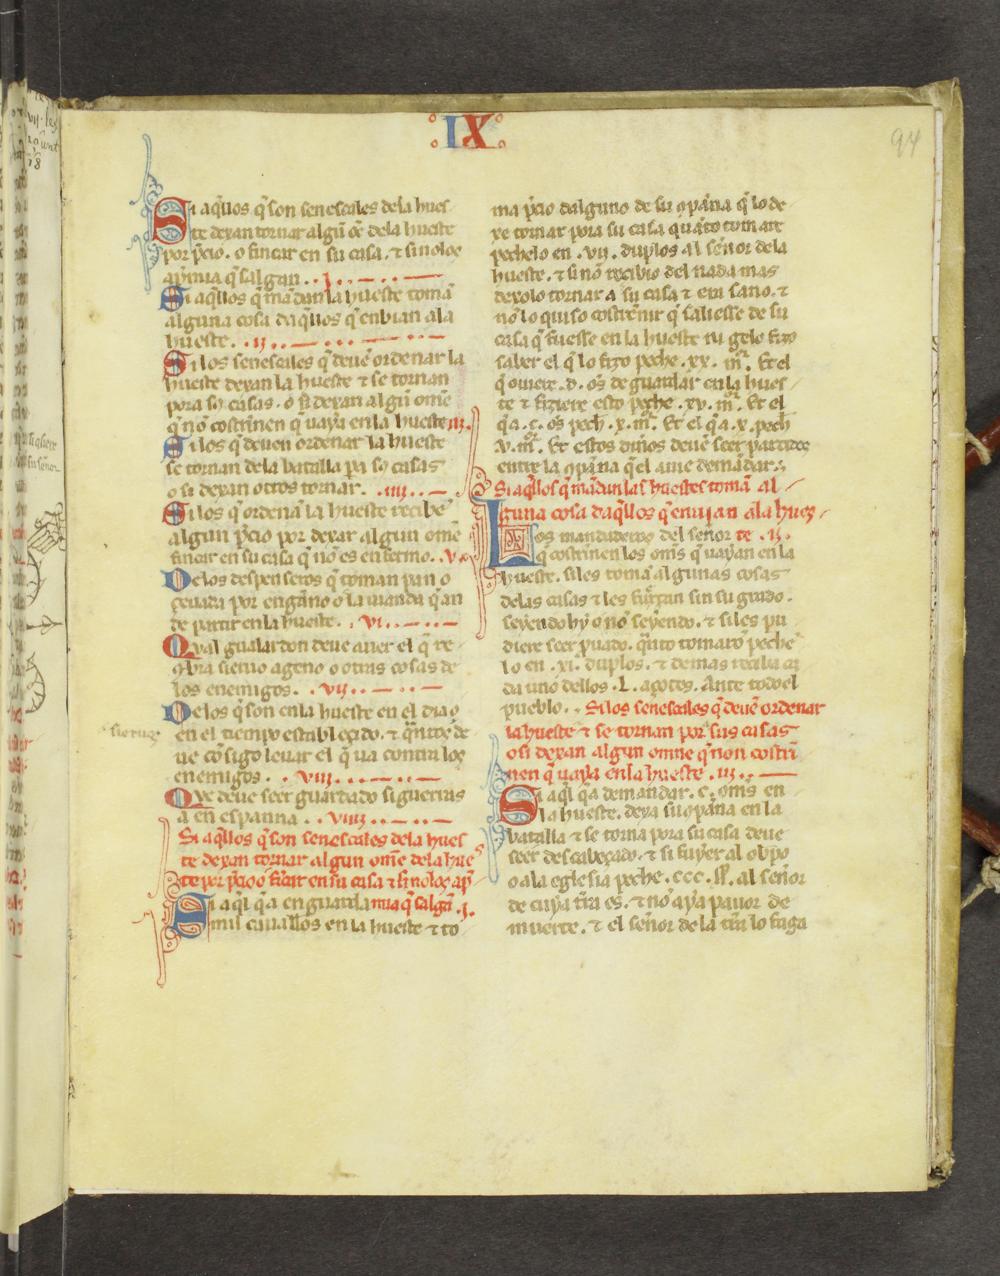 IX
94
Si aq̃llos q̃ son senescales dela hues
te dexan tornar algũ oẽ dela hueste
por p̃cio. o fincar en su casa. ⁊ si no los
apmia q̃ salgan . . i.
Si aq̃llos q̃ mãdan la hueste tomã
alguna cosa daq̃llos q̃ enbian ala
hueste. . ij.
Si los senescales q̃ deuẽ ordenar la
hueste dexan la hueste ⁊ se tornan
pora sꝰ casas. o si dexan algũ omẽ
q̃ no costrinẽn q̃ uaya en la hueste iij.
Si los q̃ deuen ordenar la hueste
se tornan dela batalla pa sꝰ casas
o si dexan otros tornar. . iiij.
Si los q̃ ordenã la hueste recibẽ
algun p̃cio por dexar algun omẽ
fincar en su casa q̃ no es enfermo. v.
Delos despenseros q̃ toman pan o
ceuada por engãno o la uianda q̃ an
de partir en la hueste. . vi.
Qual gualardon deue auer el q̃ re-
cibia sieruo ageno o otras cosas de
los enemigos. . vij.
Delos q̃ son en la hueste en el dia o
en el tiempo establecido. ⁊ q̃ntos de
ue cõsigo leuar el q̃ ua contra los
enemigos. . viij.
sieruos
Que deue seer guardado si guerras
a en espanna. . viiij.
Si aq̃llos q̃ son senescales dela hues
te dexan tornar algun omẽ dela hues
te por p̃cio o fincar en su casa ⁊ si no los ap
Si aq̃l q̃ a en guarda mia q̃ salgã .i.
mil cauallos en la hueste ⁊ to
ma p̃cio dalguno de su cõpãna q̃ lo de
xe tornar pora su casa quãto tomare
pechelo en .vij. duplos al señor dela
hueste. ⁊ si nõ recibio del nada mas
dexolo tornar a su casa ⁊ era sano. ⁊
nõ lo quiso costrẽnir q̃ saliesse de su
casa q̃ fuesse en la hueste ni gelo fizo
saber el q̃ lo fizo peche .xx. m̃r. Et el
q̃ ouiere .d. oẽs de guardar en la hues
te ⁊ fiziere esto peche .xv. m̃r. Et el
q̃ a .c. oẽs pech .x. m̃r. Et el q̃ a .x. pech
.v. m̃r. Et estos dineros deuẽ seer partidos
entre la cõpãna q̃ el auie demãdar.
Si aq̃llos q̃ mãdan las huestes tomã al
guna cosa daq̃llos q̃ enuian ala hues
Los mandaderos del señor te .ij.
q̃ costrinẽn los oms q̃ uayan en la
hueste. si les tomã algunas cosas
delas casas ⁊ les furtan sin su grado.
seyendo hy o nõ seyendo. ⁊ si les pu
diere seer p̃uado. q̃nto tomarõ pechẽ
lo en .xi. duplos. ⁊ demas reciba ca
da uno dellos .L. açotes. Ante todo el
pueblo. Si los senescales q̃ deuẽ ordenar
la hueste ⁊ se tornan por sus casas
o si dexan algun omne q̃ non costrĩ
nen q̃ uaya en la hueste .iij.
Si aq̃l q̃ a demandar .c. oms en
la hueste. dexa su cõpãna en la
batalla ⁊ se torna pora su casa deue
seer descabeçado. ⁊ si fuyer al obpo
o ala eglesia peche .ccc. ss. al señor
de cuya tr̃ra es. ⁊ nõ aya pauor de
muerte. ⁊ el señor de la tr̃ra lo faga